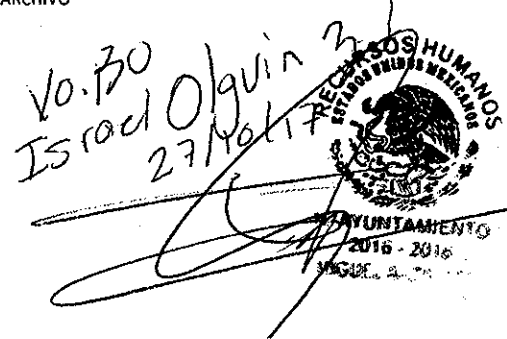 ARCHIVO
Vo.Bo
Israel Olguin
27/10/17
RECURSOS HUMANOS
ESTADOS UNIDOS MEXICANOS
AYUNTAMIENTO
2016 - 2016
MIGUEL